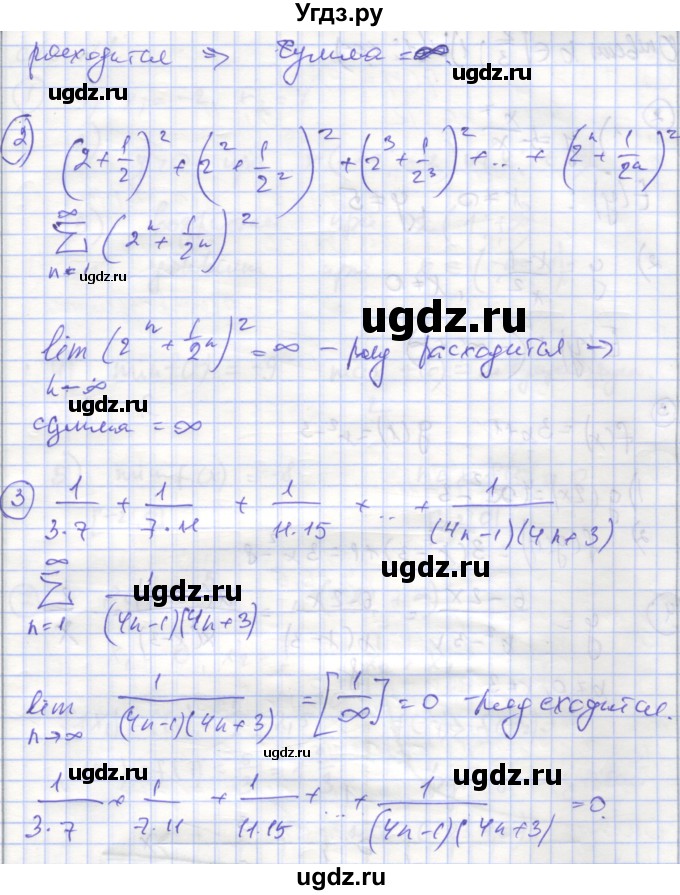 Угдз.ру
расходится => Сумма = ∞
ugdz.ru
ugdz.ru
2) (2 + 1/2)^2 + (2^2 + 1/2^2)^2 + (2^3 + 1/2^3)^2 + .. + (2^n + 1/2^n)^2
∑_{n=1}^{∞} (2^n + 1/2^n)^2
ugdz.ru
ugdz.ru
lim_{n→∞} (2^n + 1/2^n)^2 = ∞ – ряд расходится →
ugdz.ru
ugdz.ru
сумма = ∞
3) 1/(3·7) + 1/(7·11) + 1/(11·15) + .. + 1/((4n-1)(4n+3))
ugdz.ru
∑_{n=1}^{∞} 1/((4n-1)(4n+3))
ugdz.ru
lim_{n→∞} 1/((4n-1)(4n+3)) = [1/∞] = 0 – ряд сходится.
ugdz.ru
ugdz.ru
1/(3·7) + 1/(7·11) + 1/(11·15) + ... + 1/((4n-1)(4n+3)) = 0.
ugdz.ru
ugdz.ru